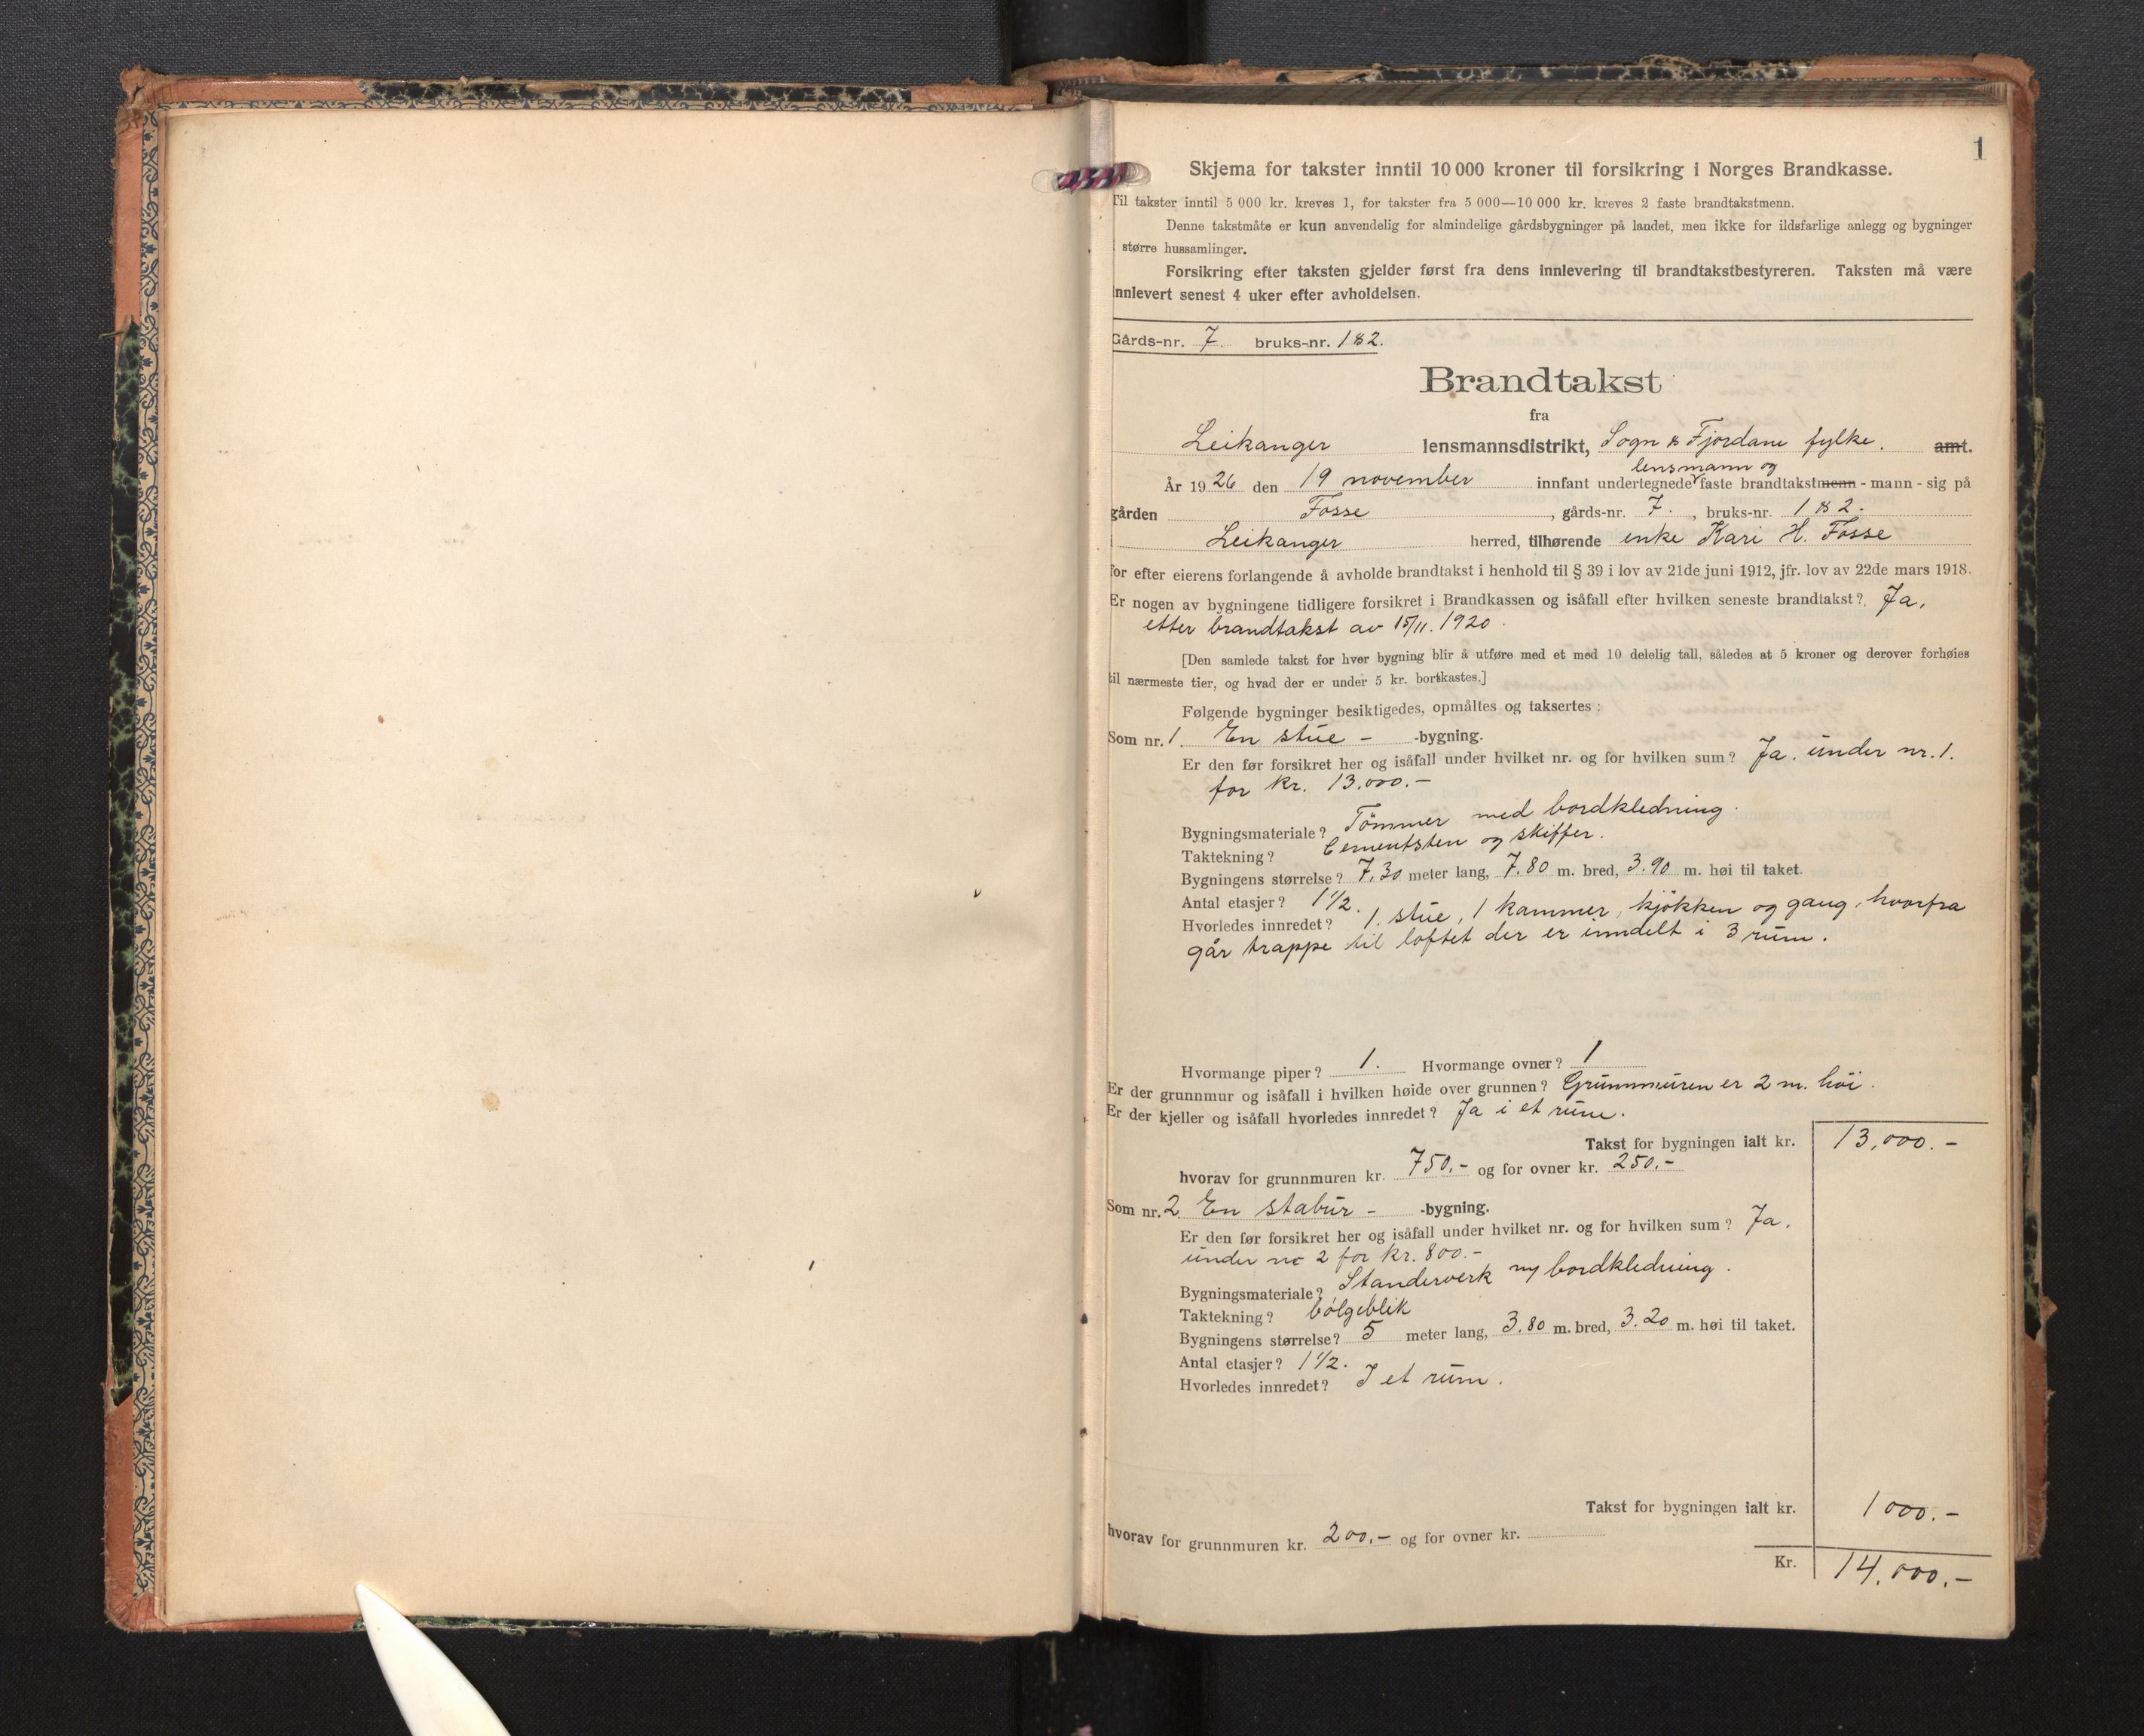 1
Skjema for takster inntil 10 000 kroner til forsikring i Norges Brandkasse.
Til takster inntil 5 000 kr. kreves 1, for takster fra 5 000—10 000 kr. kreves 2 faste brandtakstmenn.
Denne takstmåte er kun anvendelig for almindelige gårdsbygninger på landet, men ikke for ildsfarlige anlegg og bygninger
større hussamlinger.
Forsikring efter taksten gjelder først fra dens innlevering til brandtakstbestyreren. Taksten må være
innlevert senest 4 uker efter avholdelsen.
Gårds-nr. 7. bruks-nr. 1 & 2.
Brandtakst
fra
Leikanger lensmannsdistrikt, Sogn & Fjordane fylke. amt.
lensmann og
År 1926 den 19 november innfant undertegnede faste brandtakstmenn - mann - sig på
gården Fosse, gårds-nr. 7., bruks-nr. 1 & 2.
Leikanger herred, tilhørende enke Kari H. Fosse
for efter eierens forlangende å avholde brandtakst i henhold til § 39 i lov av 21de juni 1912, jfr. lov av 22de mars 1918.
Er nogen av bygningene tidligere forsikret i Brandkassen og isåfall efter hvilken seneste brandtakst? Ja,
etter brandtakst av 15/11. 1920.
[Den samlede takst for hver bygning blir å utføre med et med 10 delelig tall, således at 5 kroner og derover forhøies
til nærmeste tier, og hvad der er under 5 kr. bortkastes.]
Følgende bygninger besiktigedes, opmåltes og taksertes :
Som nr. 1. En stue - -bygning.
Er den før forsikret her og isåfall under hvilket nr. og for hvilken sum? Ja. under nr. 1.
for kr. 13.000.-
Bygningsmateriale? Tömmer med bordkledning.
Taktekning? Cementsten og skiffer.
Bygningens størrelse? 7,30 meter lang, 7.80 m. bred, 3.90 m. høi til taket.
Antal etasjer? 1 1/2.
Hvorledes innredet? 1. stue, 1 kammer, kjökken og gang, hvorfra
går trappe til loftet der er inndelt i 3 rum.
Hvormange piper? 1. Hvormange ovner? 1
Er der grunnmur og isåfall i hvilken høide over grunnen? Grunnmuren er 2 m. höi.
Er der kjeller og isåfall hvorledes innredet? Ja i et rum.
Takst for bygningen ialt kr. 13,000.-
hvorav for grunnmuren kr. 750.- og for ovner kr. 250.-
Som nr. 2. En stabur - -bygning.
Er den før forsikret her og isåfall under hvilket nr. og for hvilken sum? Ja.
under no 2 for kr. 800.-
Bygningsmateriale? Standerverk m/ bordkledning.
Taktekning? bölgeblik
Bygningens størrelse? 5 meter lang, 3.80 m. bred, 3.20 m. høi til taket.
Antal etasjer? 1 1/2.
Hvorledes innredet? I et rum.
Takst for bygningen ialt kr. 1000.-
hvorav for grunnmuren kr. 200.- og for ovner kr.
Kr. 14.000.-